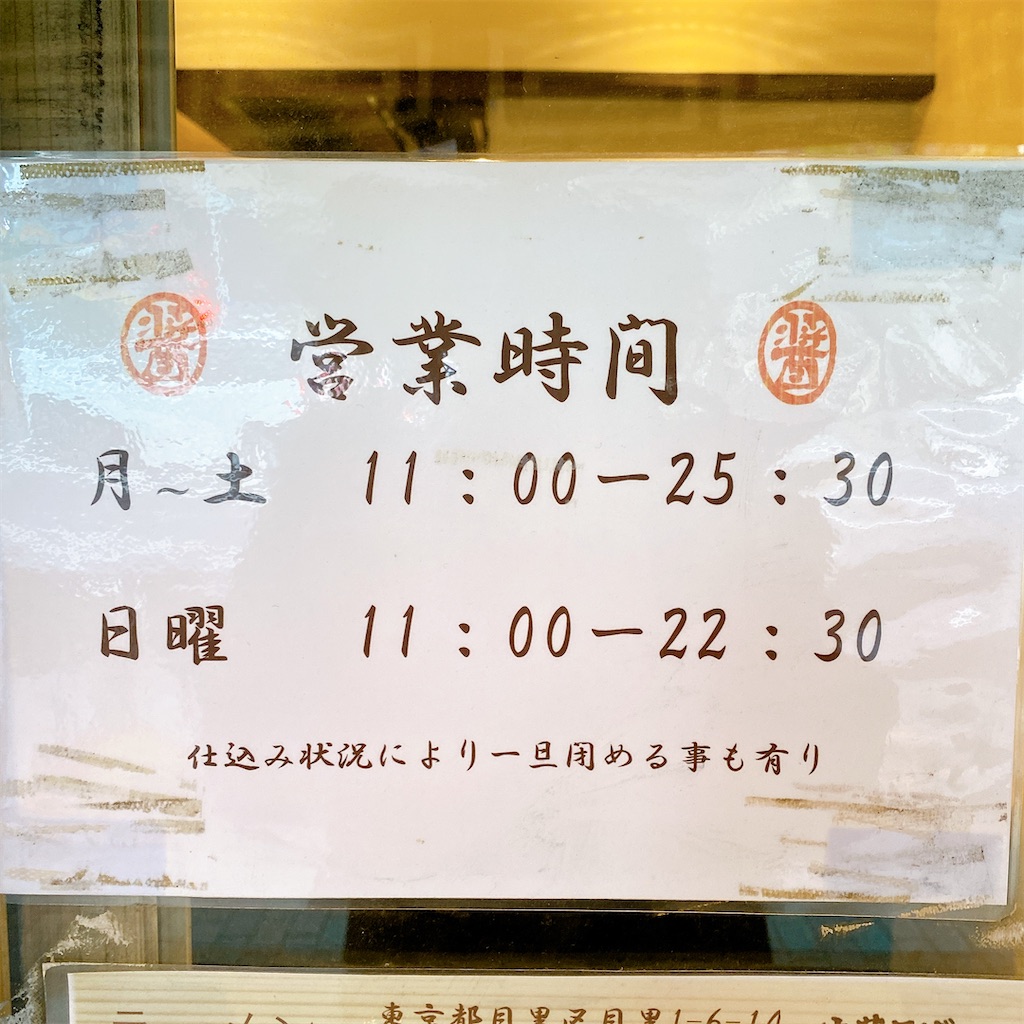 営業時間
月~土 11:00ー25:30
日曜 11:00ー22:30
仕込み状況により一旦閉める事も有り
東京都目黒区目黒1-6-14